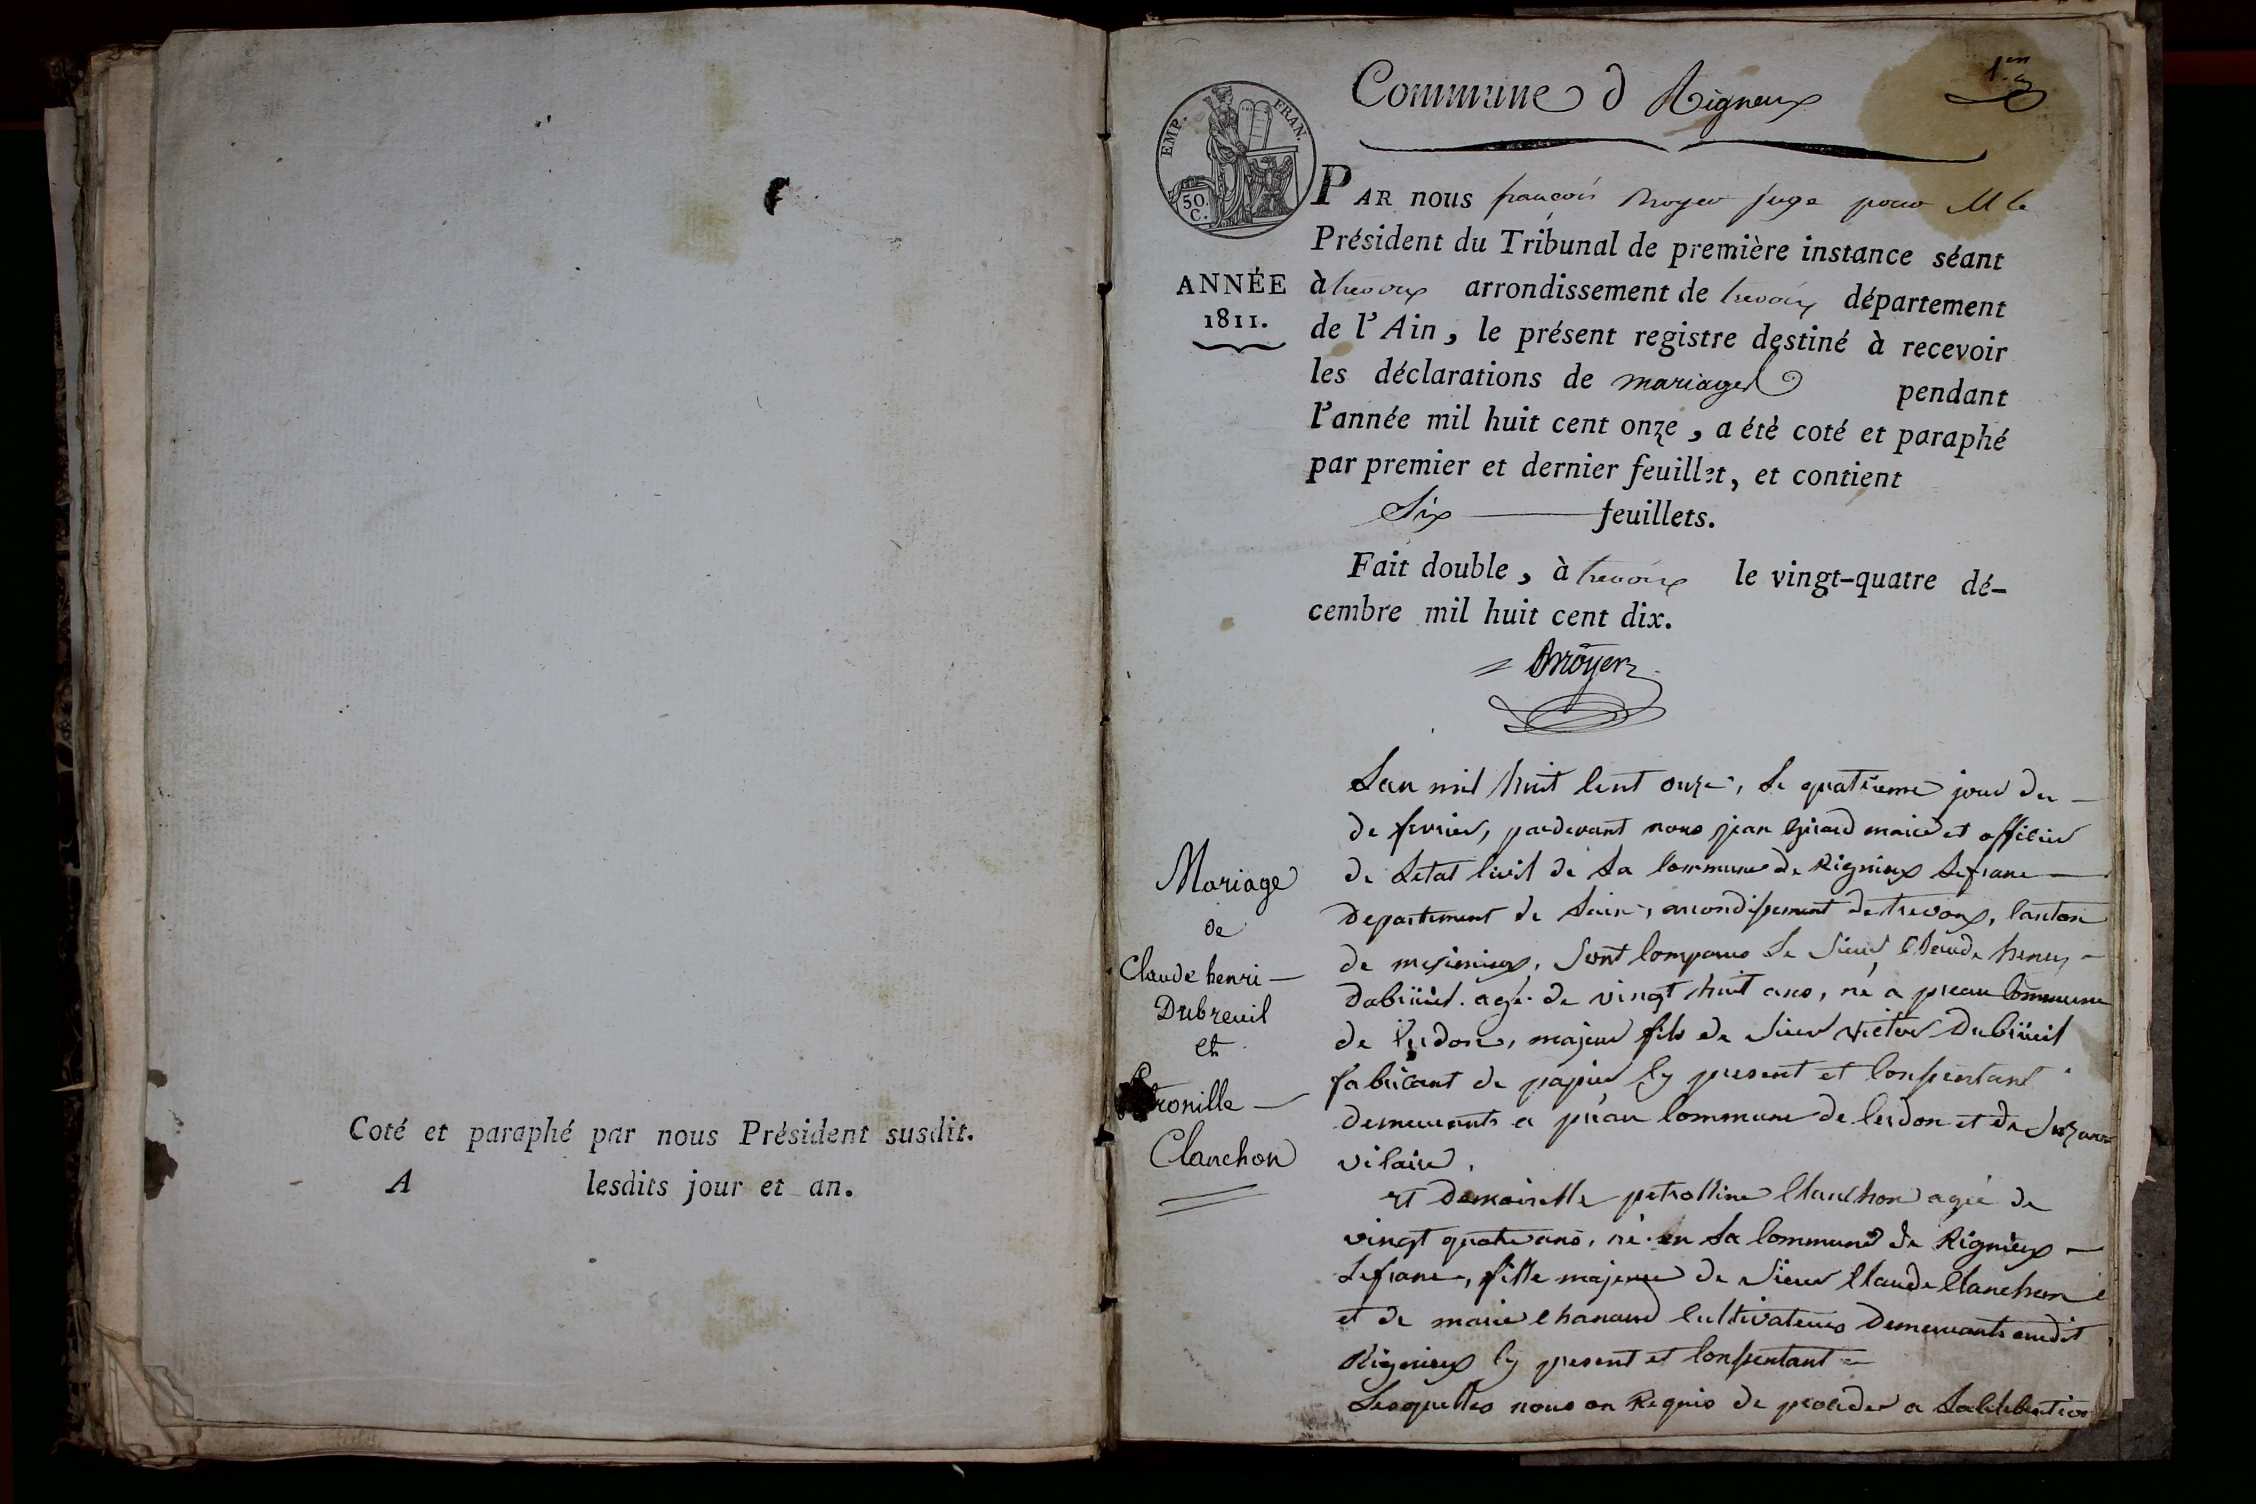 Coté et paraphé par nous Président susdit.
A lesdits jour et an.
Commune d Rigneux
1er
EMP. FRAN.
50. C.
ANNÉE
1811.
PAR nous françois Broyer juge pour M le
Président du Tribunal de première instance séant
à trevoux arrondissement de trevoux département
de l'Ain, le présent registre destiné à recevoir
les déclarations de mariages pendant
l'année mil huit cent onze, a été coté et paraphé
par premier et dernier feuillet, et contient
Six feuillets.
Fait double, à trevoux le vingt-quatre dé-
cembre mil huit cent dix.
Broyer
Mariage
de
Claude henri
Dubreuil
et
Petronille
Clanchon
Lan mil huit cent onze, le quatrieme jour du
de fevrier, pardevant nous jean Girard maire et officier
de Letat Civil de La Commune de Rignieux Lefranc
departement de Lain, arrondissement de trevoux, Canton
de mesimieux, Sont Comparus Le Sieur Claude henry
Dubrüeil agé de vingt huit ans, né a preau Commune
de Cerdon, majeur fils de Sieur victor Dubrüeil
fabricant de papier Cy present et Consentant
demeurants a préau Commune de Cerdon et de Suzanne
vilaire,
et Demoiselle petrolline Clanchon agée de
vingt quatre ans, né en La Commune de Rignieux
Lefranc, fille majeure de Sieur Claude Clanchon
et de marie Chanard Cultivateurs Demeurants audit
Rignieux Cy present et Consentant
Lesquelles nous on Requis de proceder a La Celebration